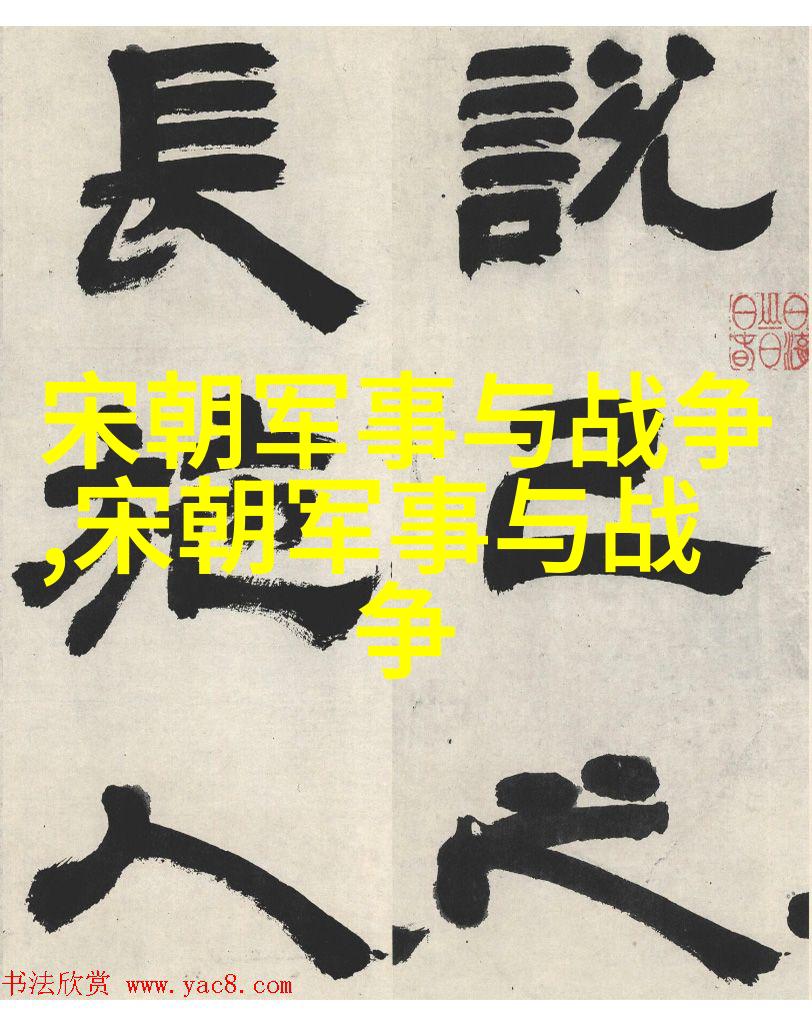 說己之
長施人
宋朝军事与战争
,宋朝军事与战
争
书法欣赏 www.yac8.com